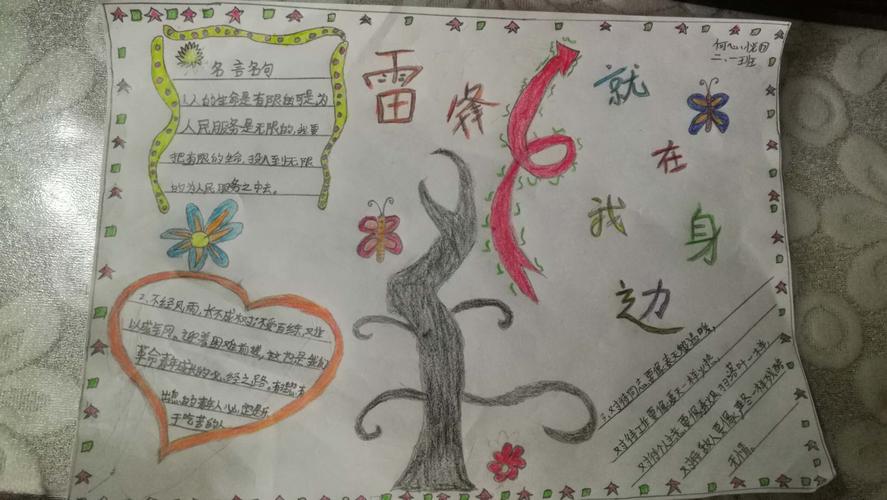 名言名句
1、人的生命是有限的可是,为
人民服务是无限的,我要
把有限的生命,投入到无限
的为人民服务之中去。
雷锋就在我身边
二、一班
2、不经风雨,长不成树;不受百练,
以成。迎着困难前进,这也是我们
革命青年成长的必经之路。有理想有
出息的青年人心定是乐
于吃苦的人
3、对待同志要像春天般温暖,
对待要像夏天一样火热,
对待个人主义要像秋风扫落叶一样
对待敌人要像严冬一样残酷
无情